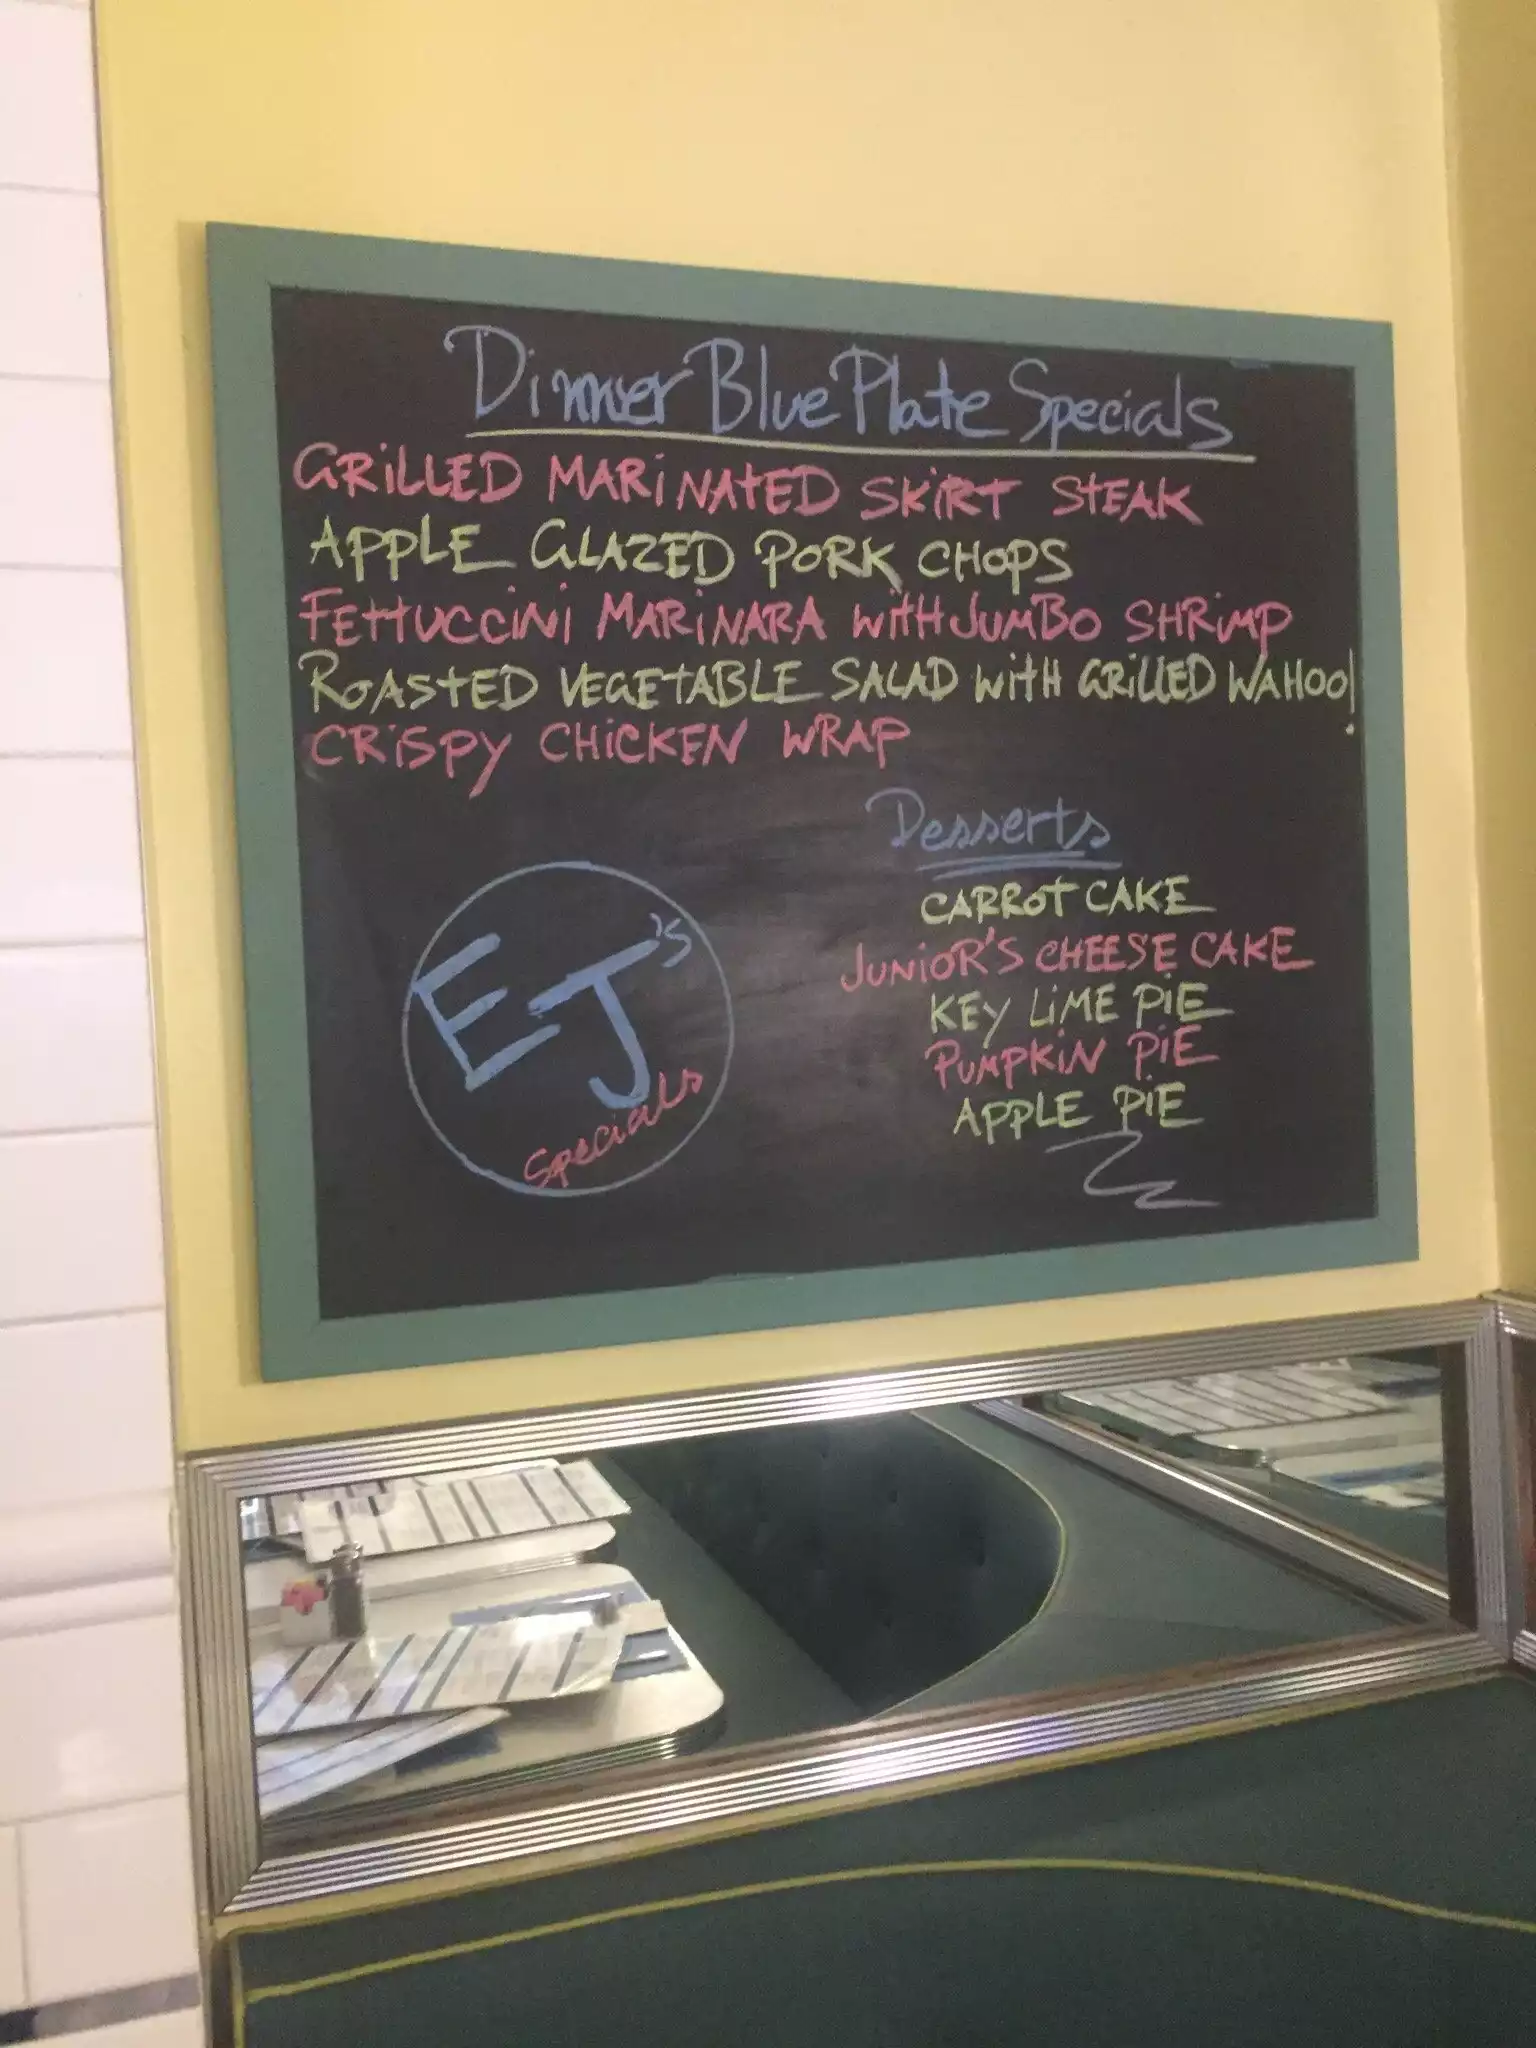 Dinner Blue Plate Specials
GRiLLED MARiNATED SKiRT STEAK
APPLE GLAZED PORK CHOPS
FETTUCCiNi MARiNARA WiTH JUMBO SHRiMP
ROASTED VEGETABLE SALAD WiTH GRiLLED WAHOO!
CRiSPY CHiCKEN WRAP
EJ's
Specials
Desserts
CARROT CAKE
JUNiOR'S CHEESE CAKE
KEY LiME PiE
PUMPKiN PiE
APPLE PiE